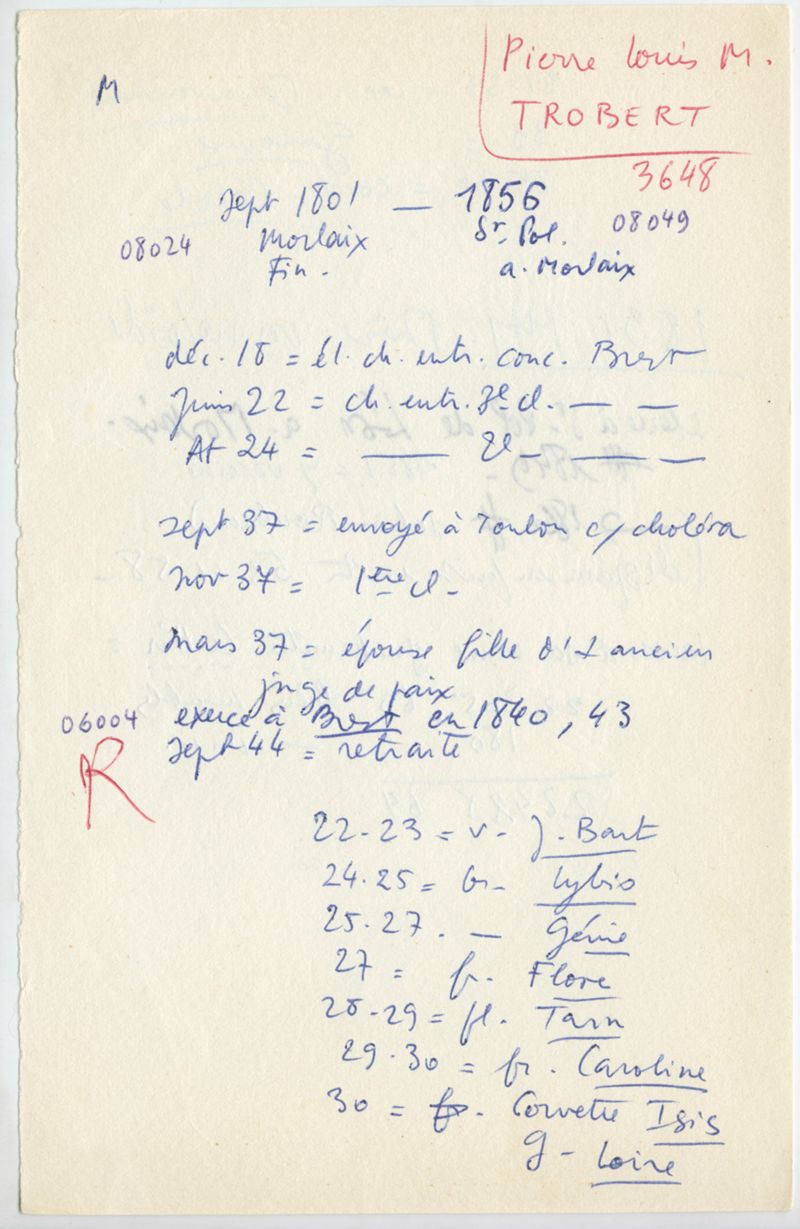 Pierre Louis M.
TROBERT
M
3648
Sept 1801 — 1856
08024 Morlaix St. Pol. 08049
Fin. a. Morlaix
déc. 18 = él. ch. entr. conc. Brest
Juin 22 = ch. entr. 3e cl. — —
At 24 = — 2e — — —
Sept 37 = envoyé à Toulon c/choléra
nov 37 = 1ère cl -
mars 37 = épouse fille d'1 ancien
juge de paix
06004 exerce à Brest en 1840, 43
Sept 44 = retraite
R
22-23 = v - J. Bart
24.25 = br - Lybio
25.27. — Génie
27 = fr. Flore
28-29 = fl. Tarn
29.30 = fr. Caroline
30 = Corvette Isis
g - Loire